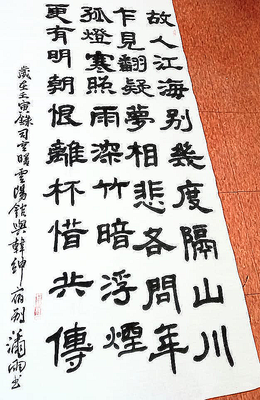 故人江海别幾度隔山川
乍見翻疑夢相悲各問年
孤燈寒照雨深竹暗浮煙
更有明朝恨離杯惜共傳
歲在壬寅錄司空曙雲陽館與韓紳宿别 瀟雨書